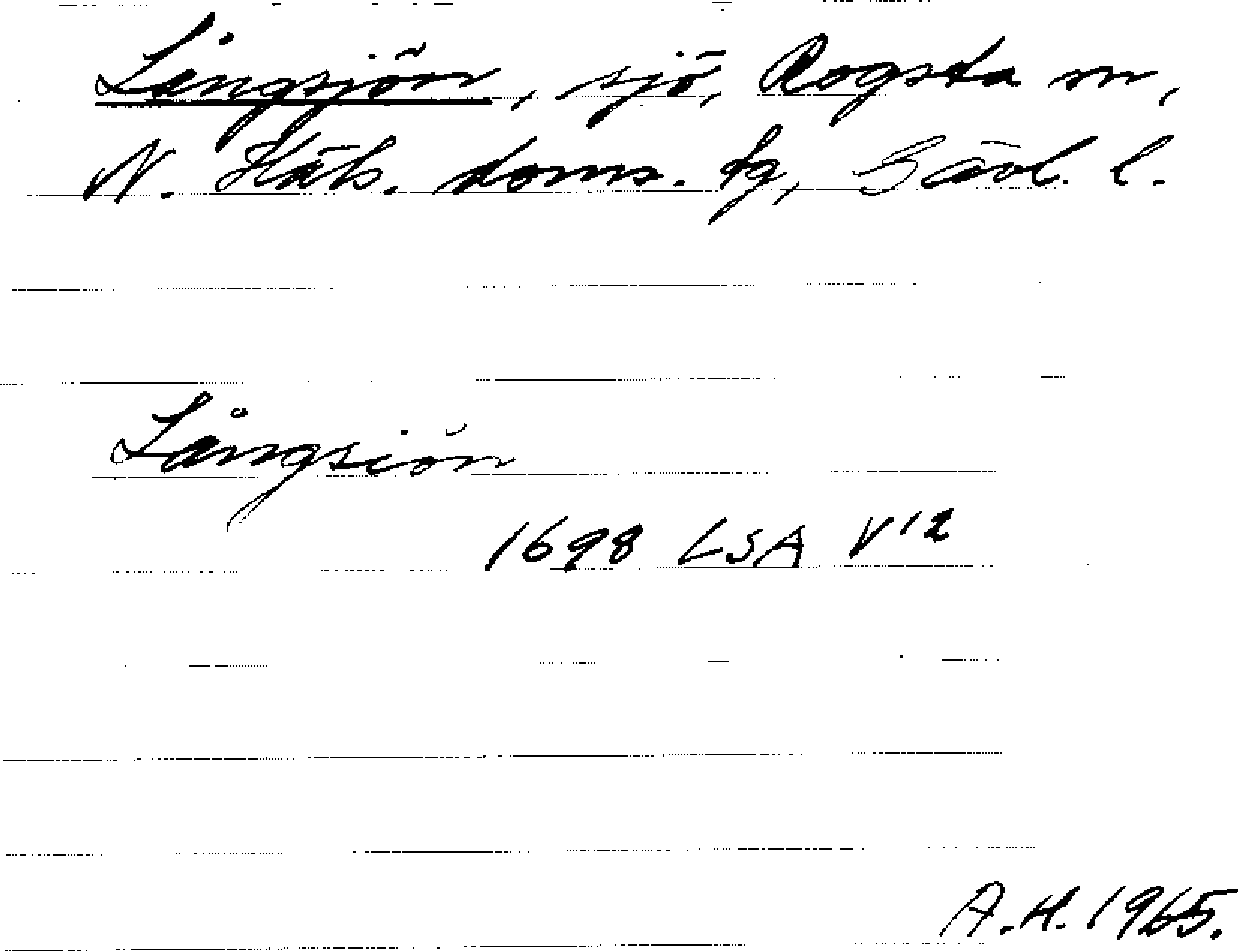 Långsjön, sjö, Rogsta sn,
N. Häls. doms. tg, Gävl. l.
Långsiön
1698 LSA V12
A.H. 1965.